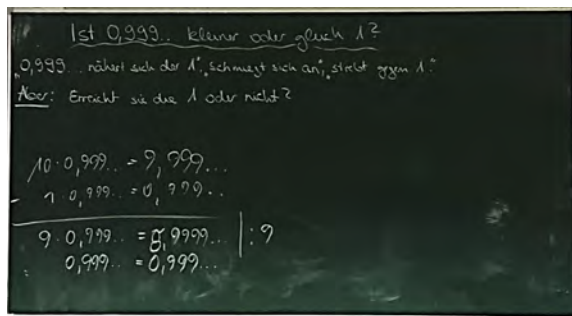 Ist 0,999.. kleiner oder gleich 1?
„0,999... nähert sich der 1", „schmiegt sich an", „strebt gegen 1."
Aber: Erreicht sie die 1 oder nicht?
10·0,999... = 9,999...
- 1·0,999.. = 0,999...
9·0,999.. = 8,9999... | : 9
0,999.. = 0,999...